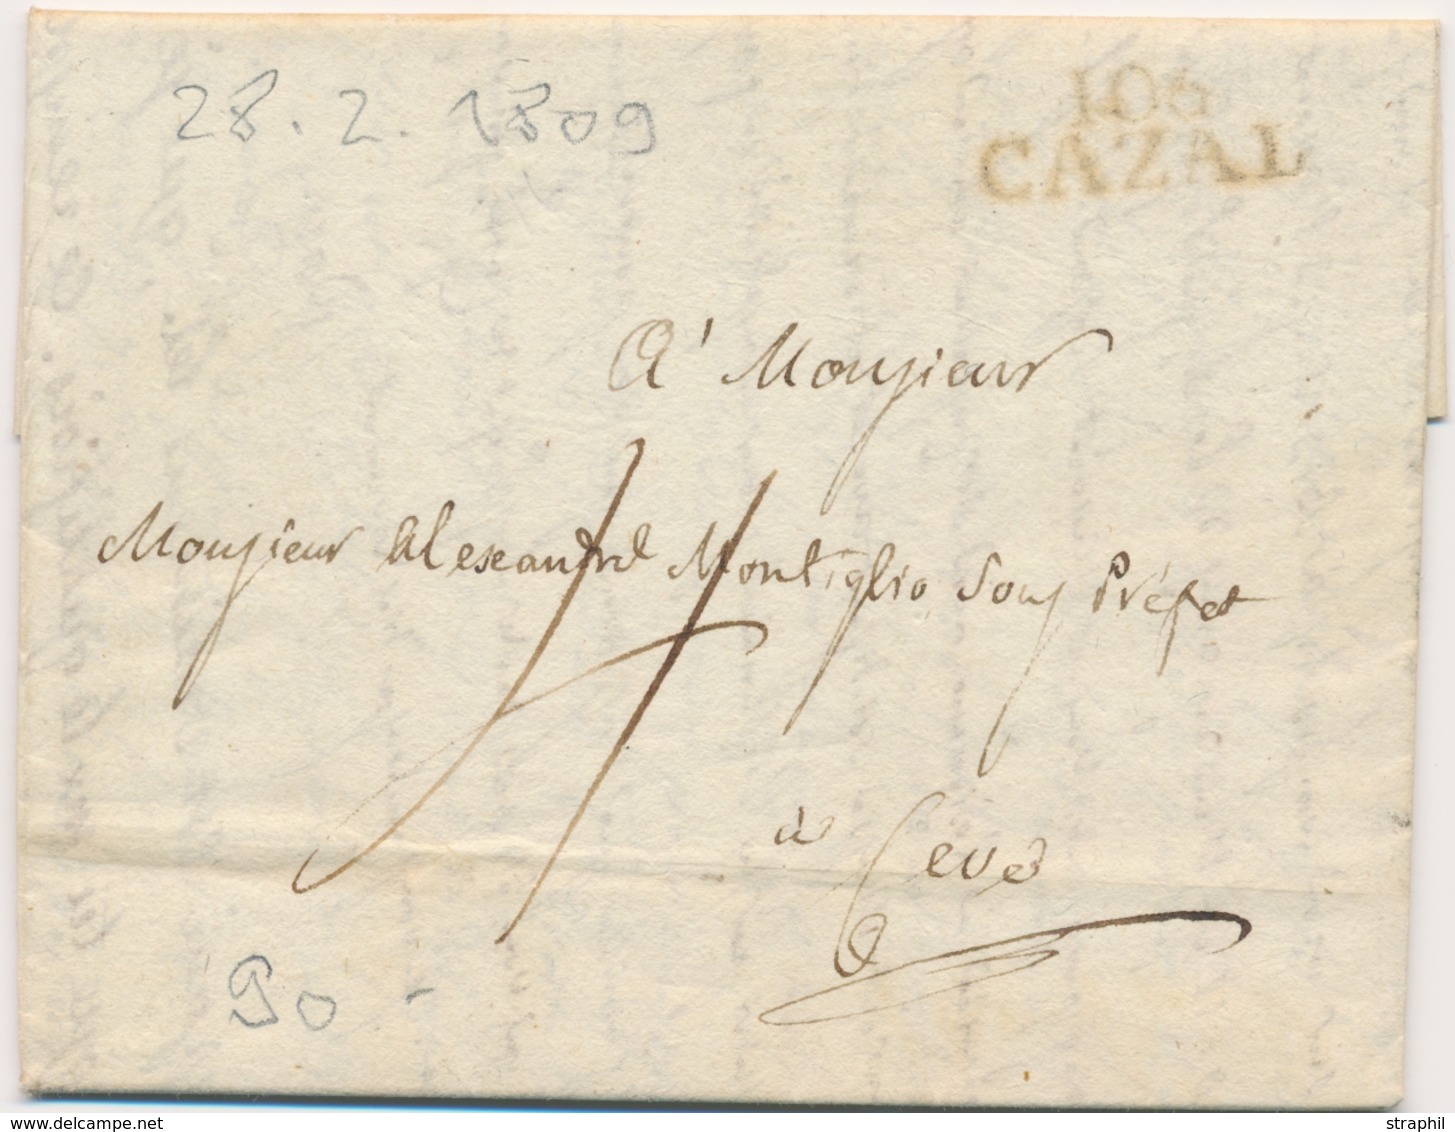 28.2.1809
106
CAZAL
A' Monsieur
Monsieur Alexandre Montiglio Sous Préfet
à Ceve
90 -
www.delcampe.net
straphil